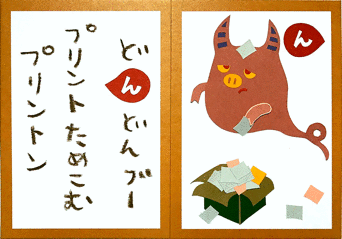 ん
どんどんブー
プリントためこむ
プリントン